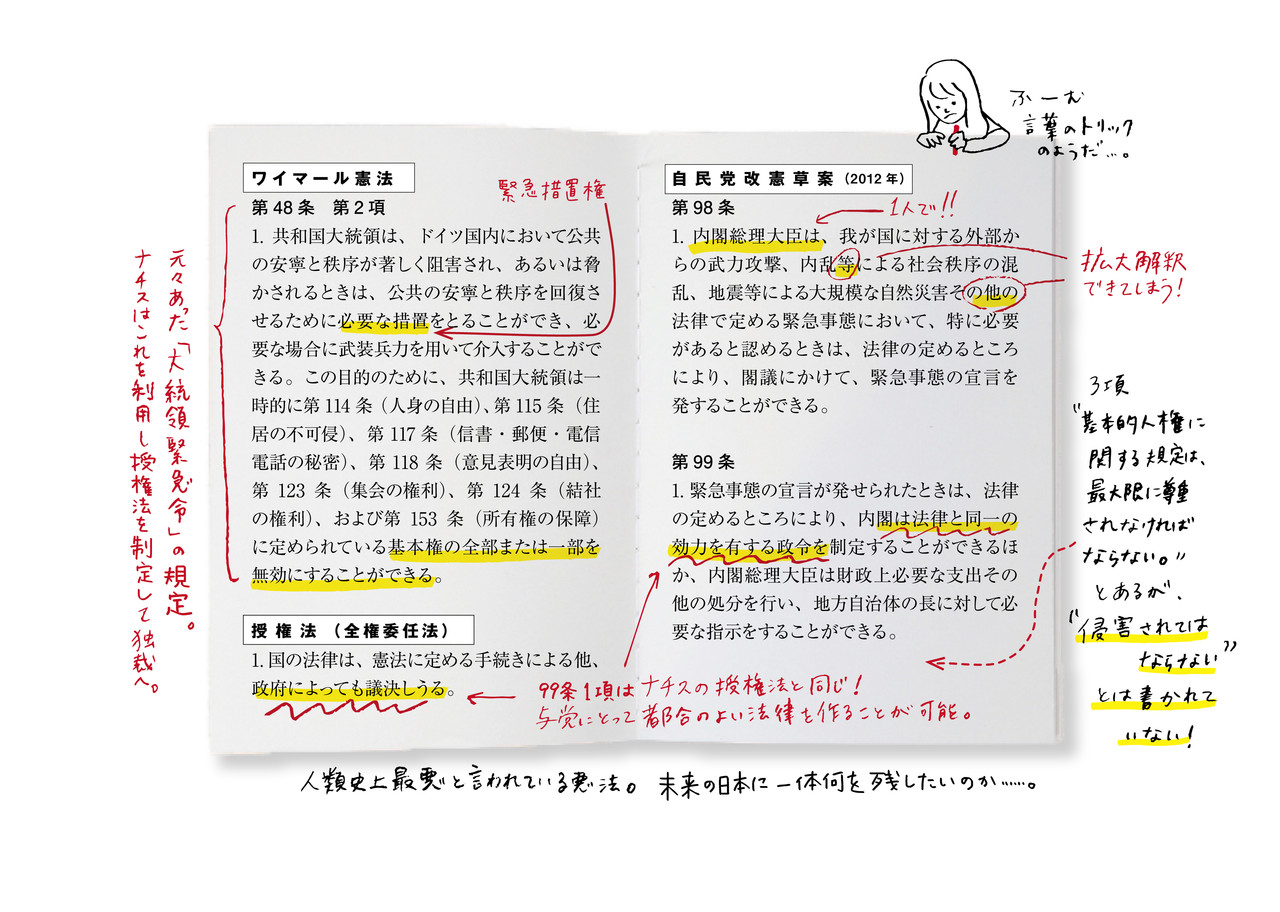 ワイマール憲法
第48条　第2項
1. 共和国大統領は、ドイツ国内において公共
の安寧と秩序が著しく阻害され、あるいは脅
かされるときは、公共の安寧と秩序を回復さ
せるために必要な措置をとることができ、必
要な場合に武装兵力を用いて介入することがで
きる。この目的のために、共和国大統領は一
時的に第114条（人身の自由）、第115条（住
居の不可侵）、第117条（信書・郵便・電信
電話の秘密）、第118条（意見表明の自由）、
第123条（集会の権利）、第124条（結社
の権利）、および第153条（所有権の保障）
に定められている基本権の全部または一部を
無効にすることができる。
緊急措置権
元々あった「大統領緊急令」の規定。
ナチスはこれを利用し授権法を制定して独裁へ。
授権法（全権委任法）
1. 国の法律は、憲法に定める手続きによる他、
政府によっても議決しうる。
自民党改憲草案（2012年）
第98条
1. 内閣総理大臣は、我が国に対する外部か
らの武力攻撃、内乱等による社会秩序の混
乱、地震等による大規模な自然災害その他の
法律で定める緊急事態において、特に必要
があると認めるときは、法律の定めるところ
により、閣議にかけて、緊急事態の宣言を
発することができる。
第99条
1. 緊急事態の宣言が発せられたときは、法律
の定めるところにより、内閣は法律と同一の
効力を有する政令を制定することができるほ
か、内閣総理大臣は財政上必要な支出その
他の処分を行い、地方自治体の長に対して必
要な指示をすることができる。
ふーむ
言葉のトリック
のようだ…。
1人で!!
拡大解釈
できてしまう!
3項
“基本的人権に
関する規定は、
最大限に尊重
されなければ
ならない。”
とあるが、
“侵害されては
ならない”
とは書かれて
いない!
99条1項はナチスの授権法と同じ!
与党にとって都合のよい法律を作ることが可能。
人類史上最悪と言われている悪法。未来の日本に一体何を残したいのか……。